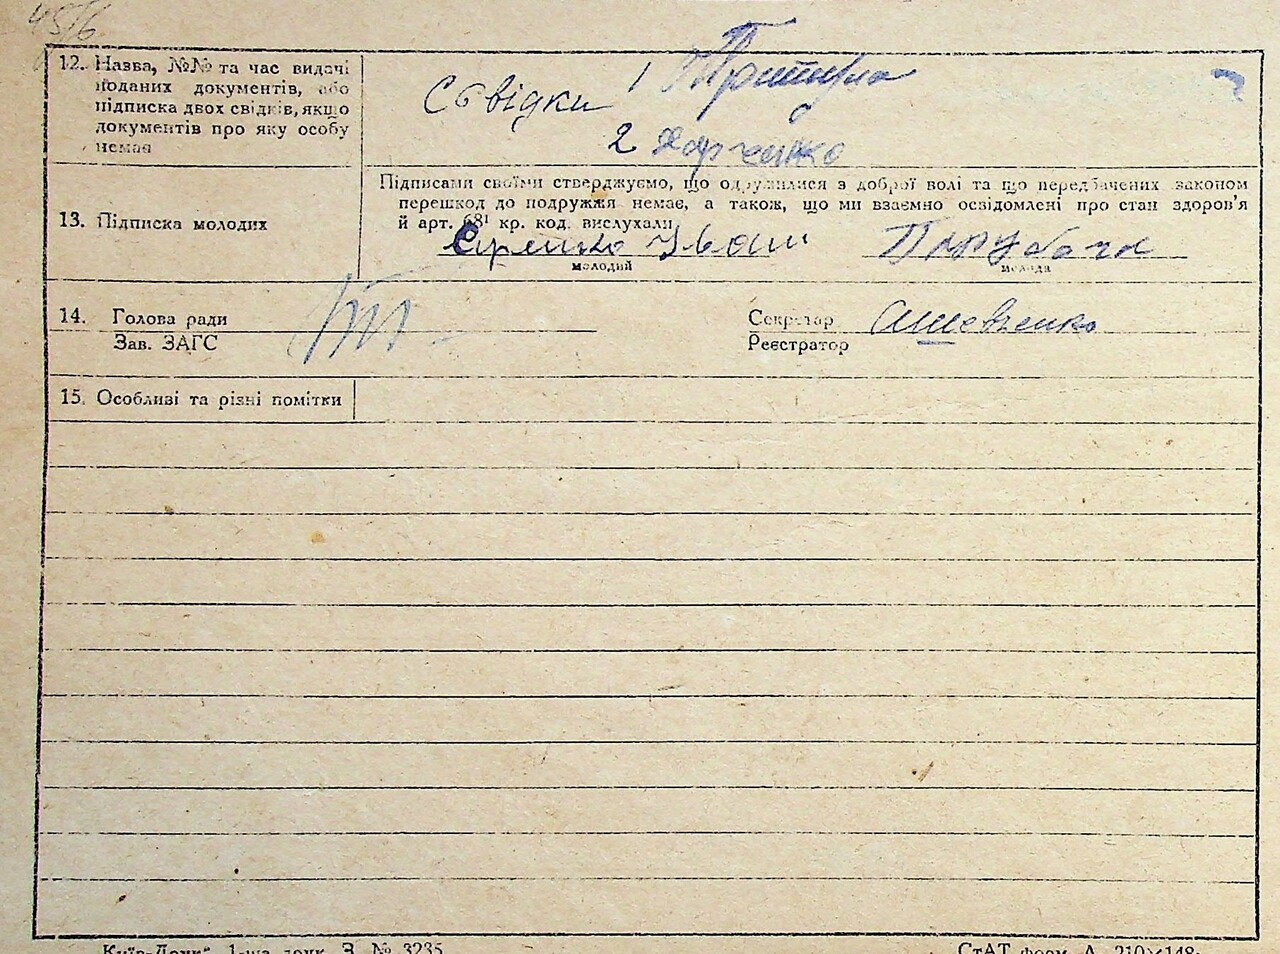 12. Назва, №№ та час видачі
поданих документів, або
підписка двох свідків, якщо
документів про яку особу
немає
Свідки 1 Притула
2 Харченко
13. Підписка молодих
Підписами своїми стверджуємо, що одружилися з доброї волі та що передбачених законом
перешкод до подружжя немає, а також, що ми взаємно освідомлені про стан здоров'я
й арт. 68¹ кр. код. вислухали
Іван Парубоча
молодий молода
14. Голова ради
Зав. ЗАГС
Секретар Шевченко
Реєстратор
15. Особливі та різні помітки
Київ-Друк" 1-ша друк. З. № 3235
СтАТ форм. А 210×148.